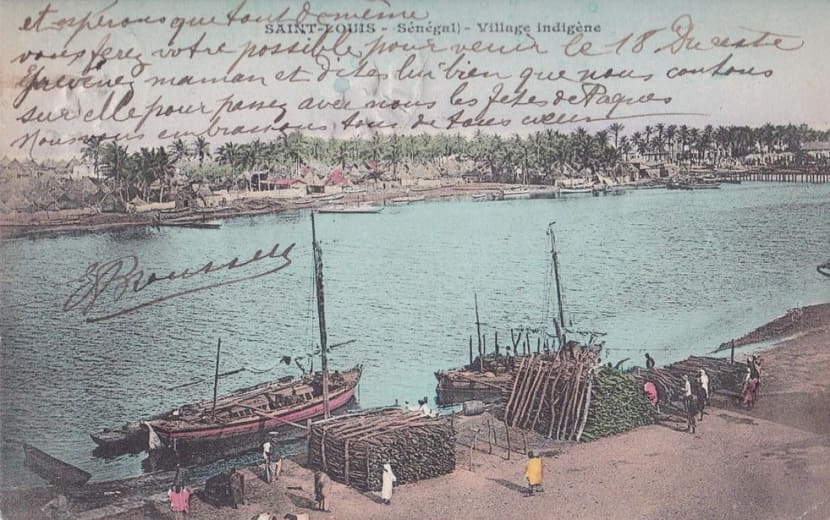 et espérons que tout de même
SAINT-LOUIS - Sénégal) - Village indigène
vous ferez votre possible pour venir le 18 Du reste
prévenez maman et dites lui bien que nous comtons
sur elle pour passer avec nous les fêtes de Paques
Nous vous embrassons tous de tous cœur
Broussell